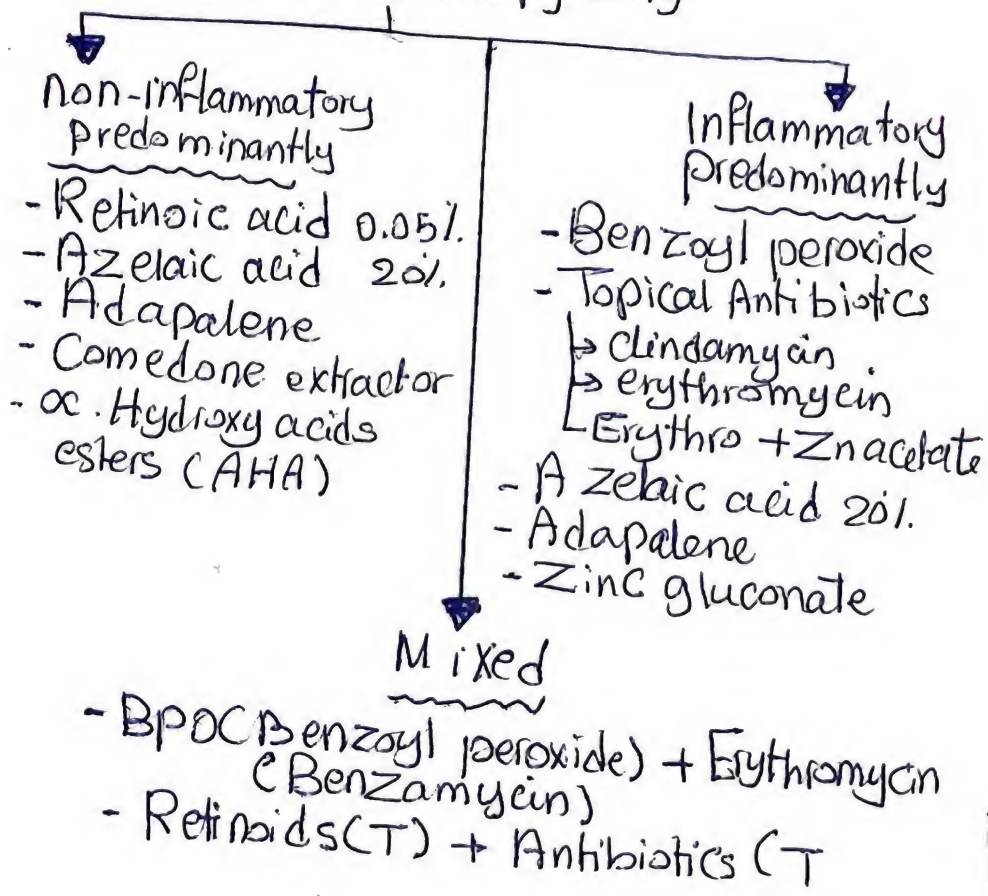 non-inflammatory
predominantly
- Retinoic acid 0.05%.
- Azelaic acid 20%.
- Adapalene
- Comedone extractor
- α. Hydroxy acids
esters (AHA)
Inflammatory
predominantly
- Benzoyl peroxide
- Topical Antibiotics
→ Clindamycin
→ erythromycin
Erythro + Zn acetate
- Azelaic acid 20%.
- Adapalene
- Zinc gluconate
Mixed
- BPO(Benzoyl peroxide) + Erythromycin
(Benzamycin)
- Retinoids(T) + Antibiotics (T